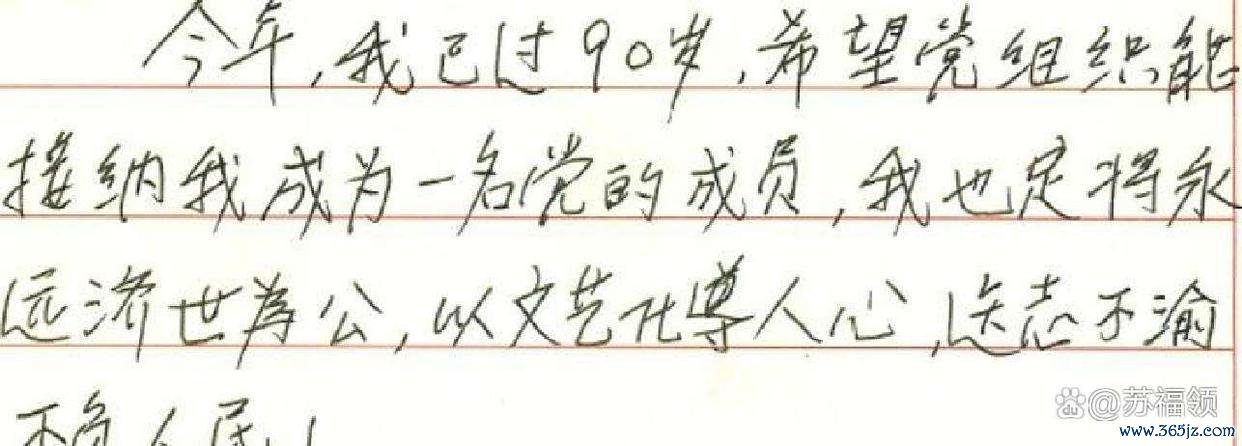 今年,我已过90岁,希望党组织能
接纳我成为一名党的成员,我也定将永
远济世為公,以文艺化導人心,矢志不渝
不负人民!
@苏福领
www.365jz.com